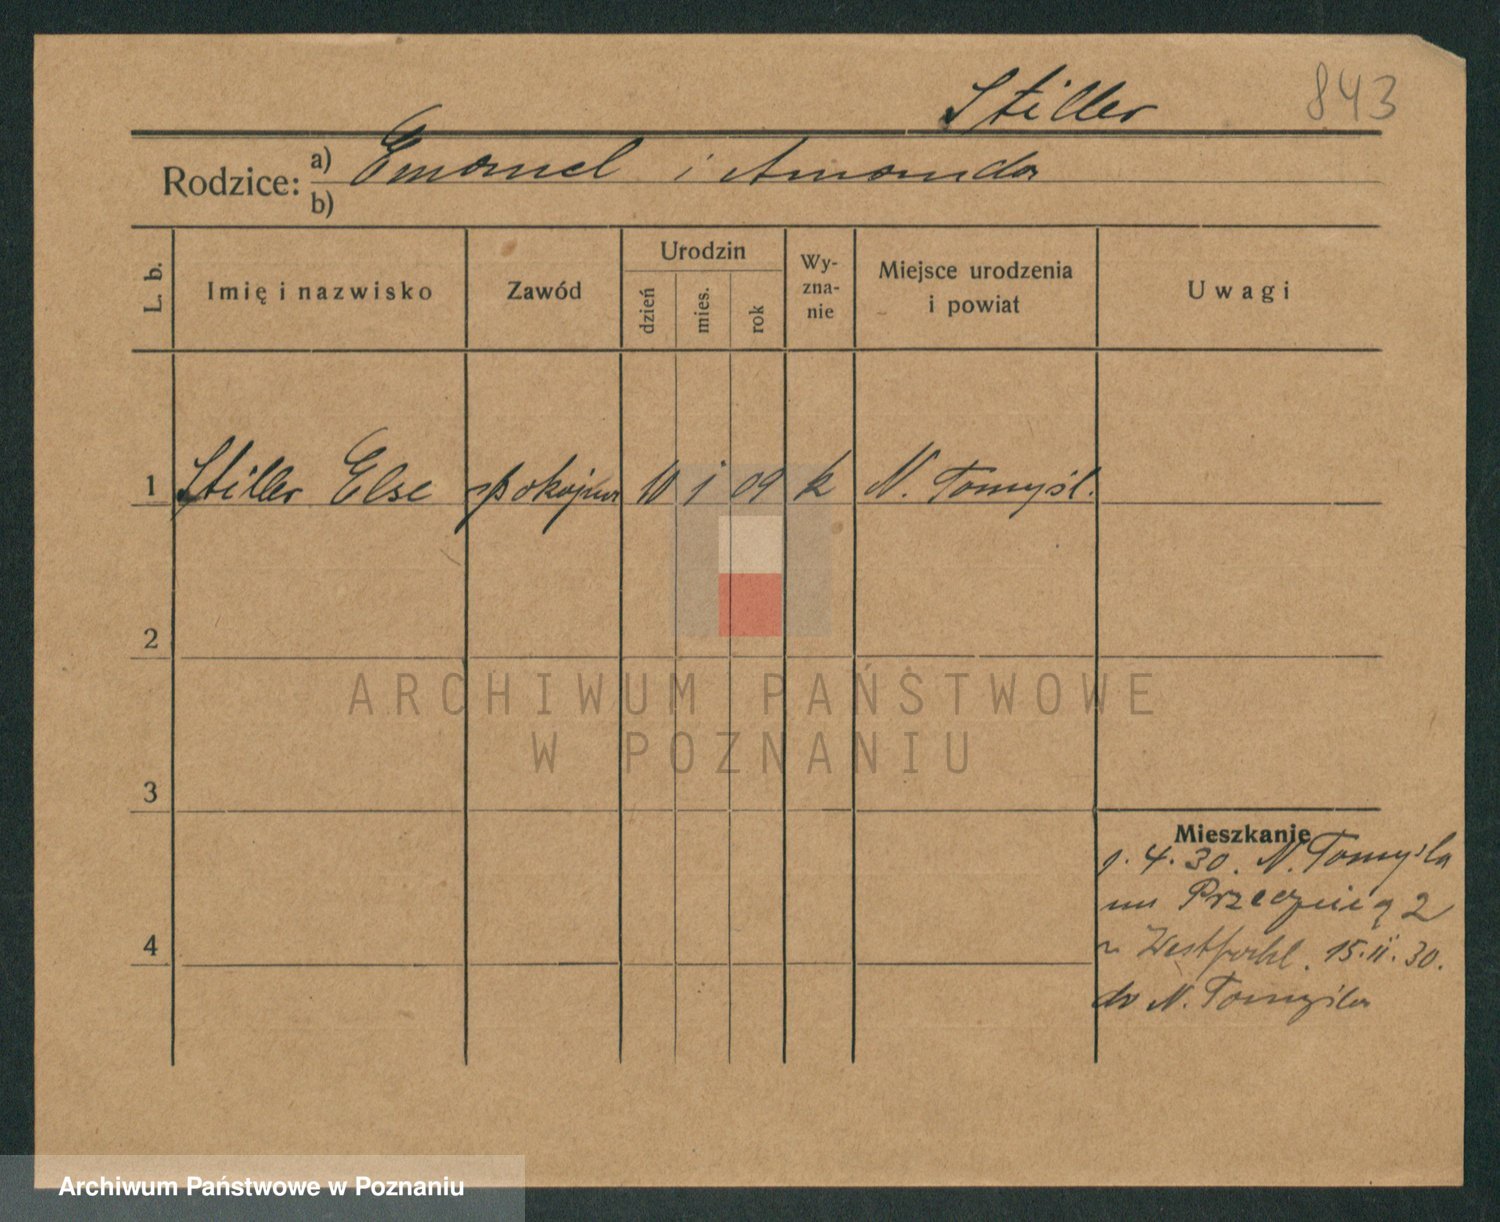 Stiller 843
Rodzice: a) Emanuel i Amanda
b)
L. b. Imię i nazwisko Zawód Urodzin dzień mies. rok Wy-zna-nie Miejsce urodzenia i powiat Uwagi
1 Stiller Else pokojowa 10 1 09 k N. Tomyśl.
2
3
4
Mieszkanie
1.4.30. N. Tomyśla
Przecznicą 2
u Westfahl. 15.11.30.
do N. Tomyśla
ARCHIWUM PAŃSTWOWE
W POZNANIU
Archiwum Państwowe w Poznaniu